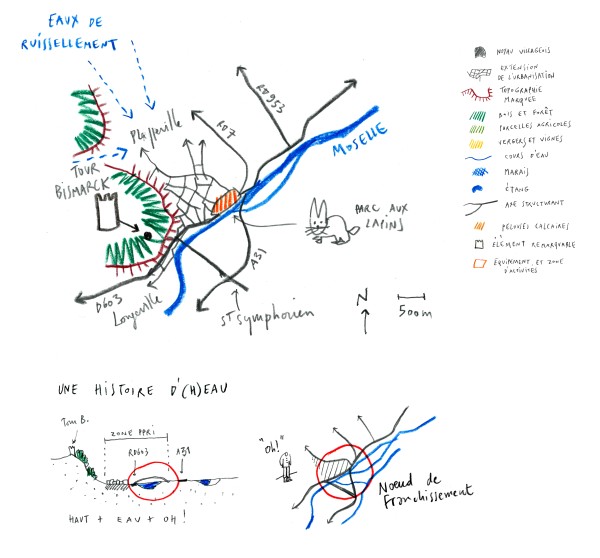 EAUX DE
RUISSELLEMENT
RD953
RD7
MOSELLE
Plappeville
TOUR
BISMARCK
PARC AUX
LAPINS
A31
D603
Longeville
ST Symphorien
N
500m
NOYAU VILLAGEOIS
EXTENSION
DE L'URBANISATION
TOPOGRAPHIE
MARQUEE
BOIS ET FORÊT
PARCELLES AGRICOLES
VERGERS ET VIGNES
COURS D'EAU
MARAIS
ÉTANG
AXE STRUCTURANT
PELOUSES CALCAIRES
ÉLÉMENT REMARQUABLE
EQUIPEMENT ET ZONE
D'ACTIVITÉS
UNE HISTOIRE D'(H)EAU
Tour B.
ZONE PPRI
RD603
A31
HAUT + EAU + OH !
"Oh!"
Noeud de
Franchissement